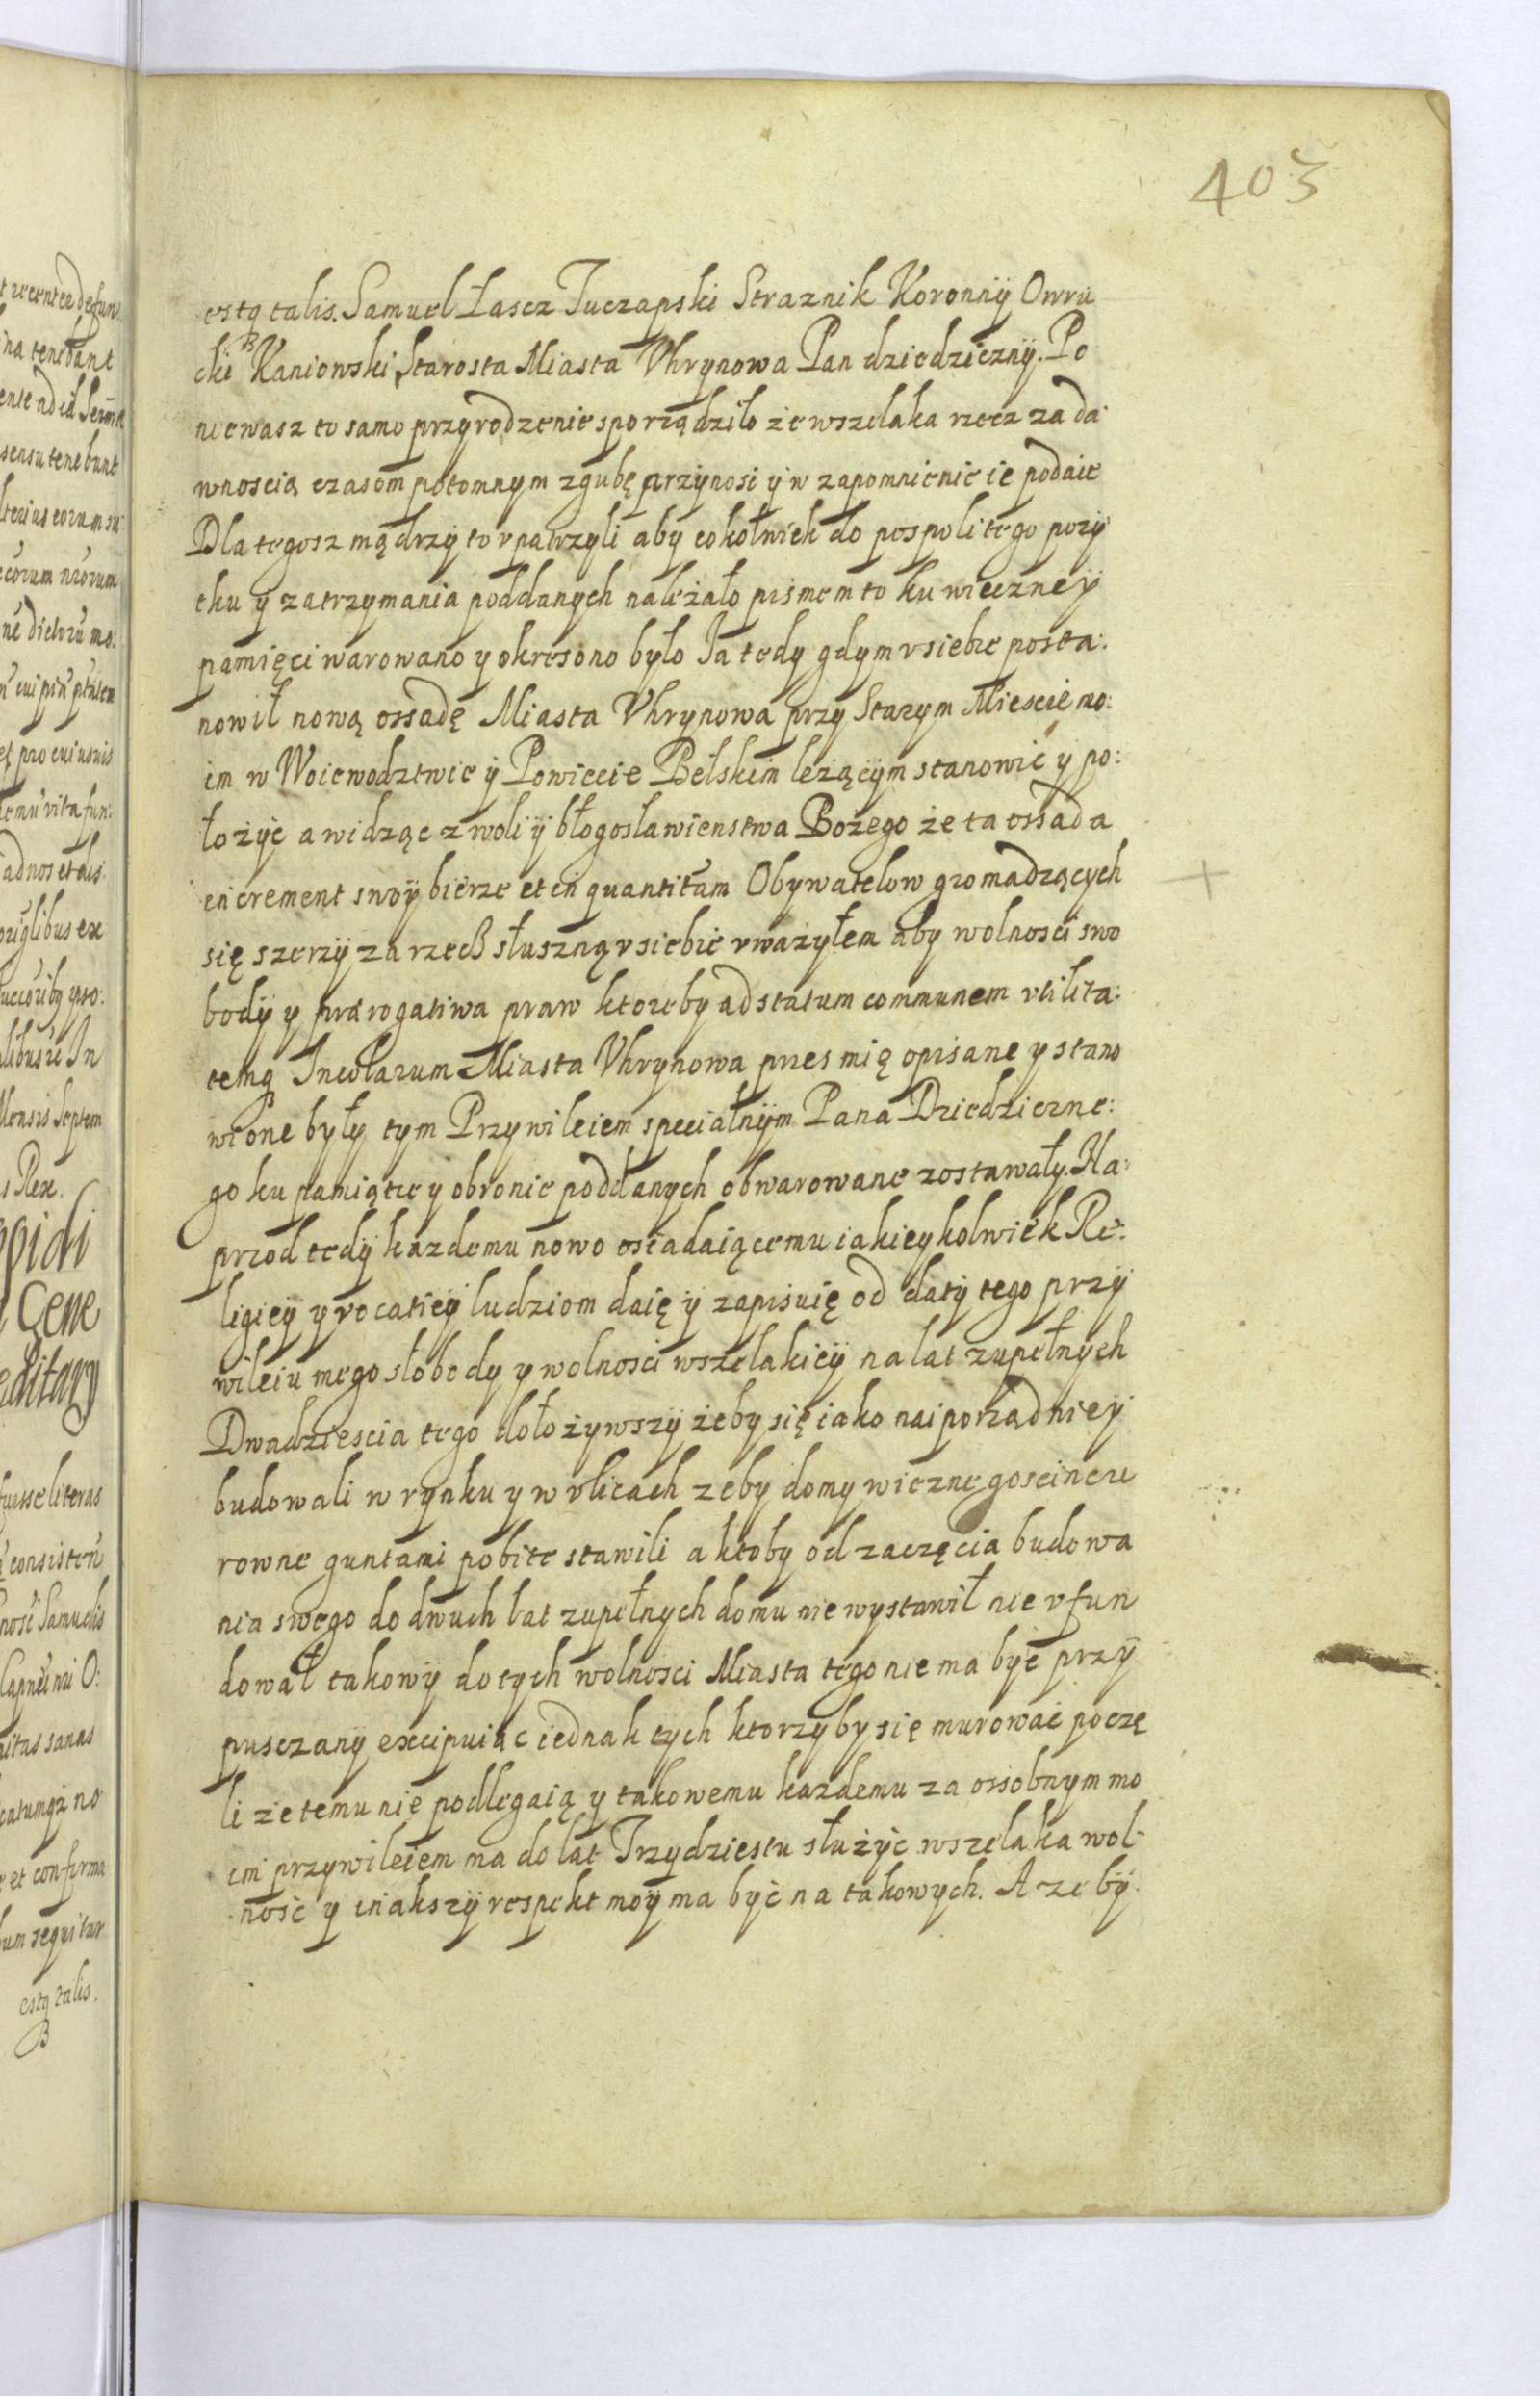 403
estq talis. Samuel Łascz Tuczapski Straznik Koronny Owru
cki Kaniowski Starosta Miasta Vhrynowa Pan dziedziczny. Po
niewasz to samo przyrodzenie sporządziło że wszelaka rzecz za da
wnoscią czasom potomnym zgubę przynosi y w zapomnienie ie podaie
Dla tegosz mądrzy to vpatrzyli aby cokolwiek do pospolitego pozy
tku y zatrzymania poddanych należało pismem to ku wieczney
pamięci warowano y okresono było Ja tedy gdym v siebie posta:
nowił nową ossadę Miasta Vhrynowa przy Starym Miescie mo:
im w Woiewodztwie y Powiecie Bełskim leżącym stanowić y po:
łożyć a widząc z woli y błogosławienstwa Bożego że ta ossada
increment swoy bierze et in quantitam Obywatelow gromadzących
się szerzy za rzecz słuszną v siebie vważyłem aby wolnosci swo
body y prærogatiwa praw ktoreby ad statum communem vtilita:
temq Incolarum Miasta Vhrynowa przes mię opisane y stano
wione były tym Przywileiem specialnym Pana Dziedziczne:
go ku pamiątce y obronie poddanych obwarowane zostawały. Na:
przod tedy kazdemu nowo osiadaiącemu iakieykolwiek Re:
ligiey y vocatiey ludziom daię y zapisuię od daty tego przy
wileiu mego słobody y wolnosci wszelakiey na lat zupełnych
Dwadziescia tego dołożywszy żeby się iako naiporządniey
budowali w rynku y w vlicach zeby domy wieczne goscincu
rowne guntami pobite stawili a ktoby od zaczęcia budowa
nia swego do dwuch lat zupełnych domu nie wystawił nie vfun
dował takowy do tych wolnosci Miasta tego nie ma być przy
pusczany excipuiąc iednak tych ktorzyby się murować poczę
li że temu nie podlegaią y takowemu kazdemu za ossobnym mo
im przywileiem ma do lat Trzydziestu służyć wszelaka wol
ność y inakszy respekt moy ma być na takowych. A zeby